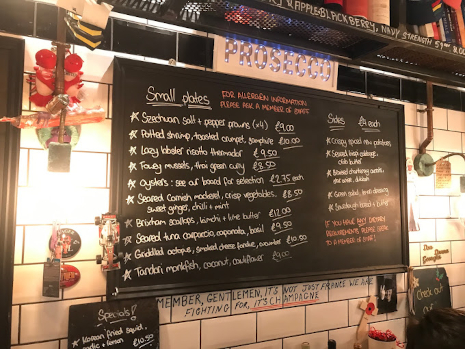 RAPPLE+BLACKBERRY, NAVY STRENGTH 57%
PROSECCO
Small plates
FOR ALLERGEN INFORMATION
PLEASE ASK A MEMBER OF STAFF
Szechuan salt + pepper prawns (x4) £9.00
Potted shrimp, toasted crumpet, samphire £10.00
Lazy lobster risotto thermidor £9.50
Fowey mussels, thai green curry £8.50
Oysters: see our board for selection £2.75 each
Seared Cornish mackerel, crisp vegetables, £8.50
sweet ginger, chilli + mint
Brixham scallops, kimchi + lime butter £12.00
Seared tuna carpaccio, caponata, basil £9.50
Griddled octopus, smoked cheese fondue, cucumber £10.50
Tandoori monkfish, coconut, cauliflower £9.00
Sides £4 each
Crispy spiced new potatoes
Seared hispi cabbage,
Green salad,
IF YOU HAVE ANY DIETARY
REQUIREMENTS PLEASE SPEAK
TO A MEMBER OF STAFF!
MEMBER, GENTLEMEN, IT'S NOT JUST FRANCE WE ARE
FIGHTING FOR, IT'S CHAMPAGNE
Specials!
Korean fried squid,
garlic + lemon £10.50
Check out